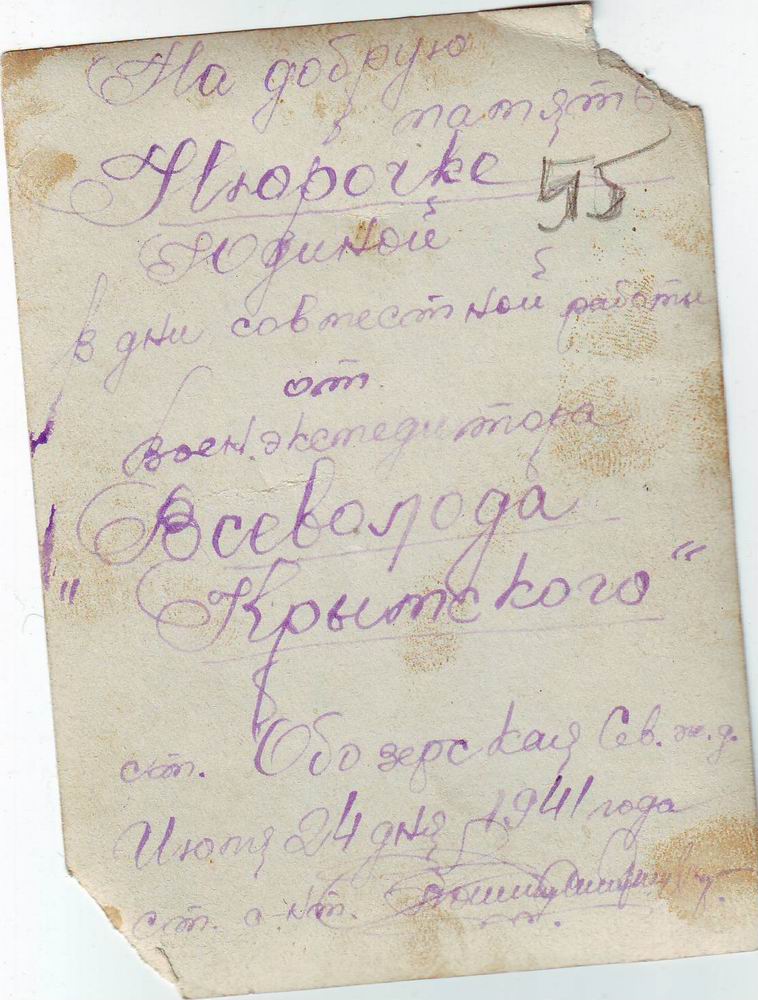 На добрую
память
Нюрочке
55
Юдиной
в дни совместной работы
от
Воен. экспедитора
Всеволода
"Крымского"
ст. Обозерская Сев. ж.д.
24 дня 1941 года
ст.